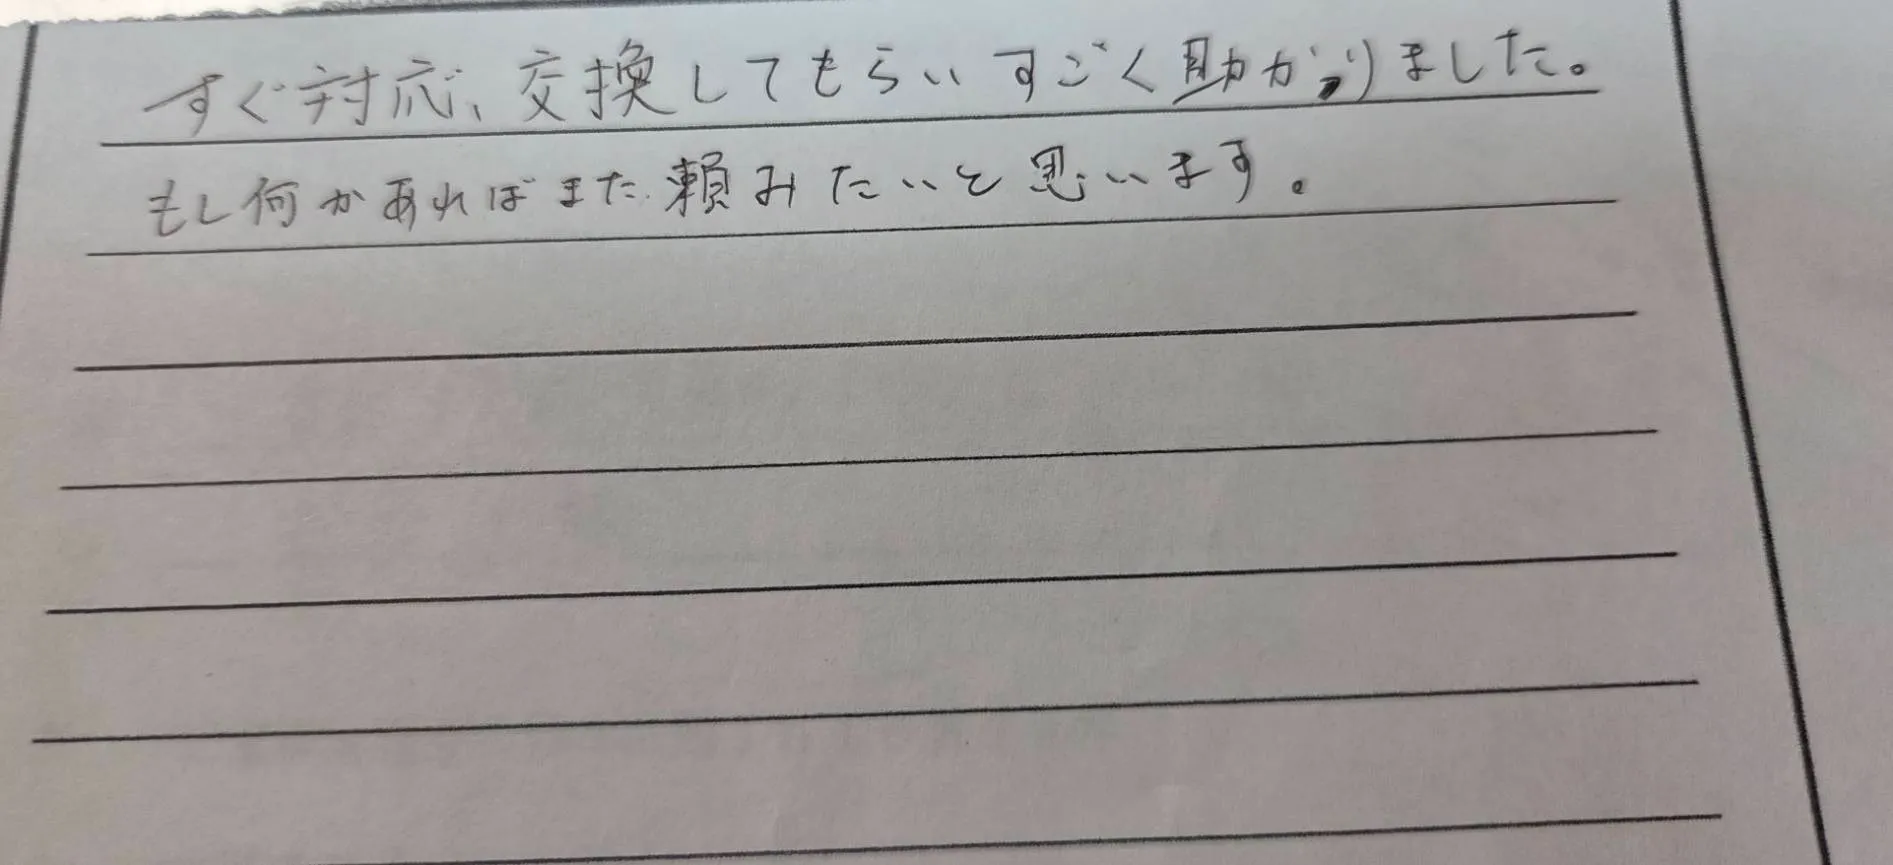 すぐ対応、交換してもらいすごく助かりました。
もし何かあればまた頼みたいと思います。